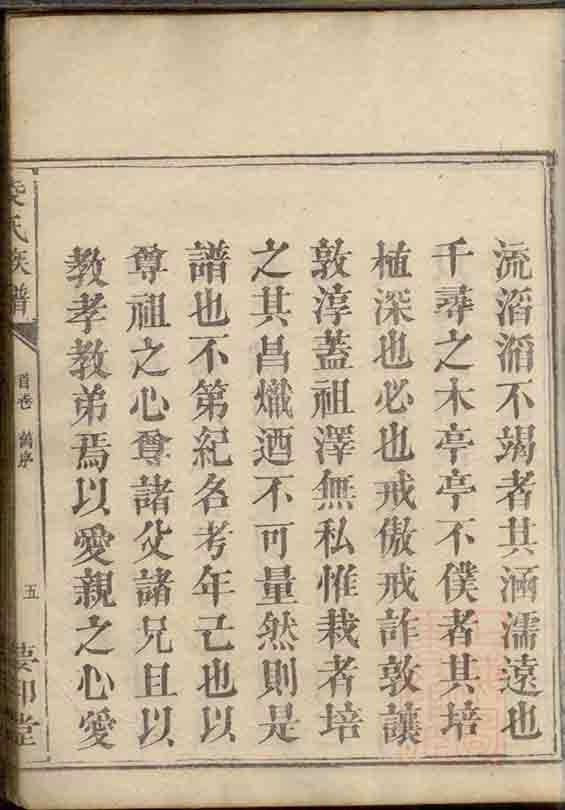 流滔滔不竭者其涵濡遠也
千尋之木亭亭不僕者其培
植深也必也戒傲戒詐敦讓
敦淳蓋祖澤無私惟栽者培
之其昌熾迺不可量然則是
譜也不第紀名考年已也以
尊祖之心尊諸父諸兄且以
教孝教弟焉以愛親之心愛
氏族譜
首卷 舊序
五
堂